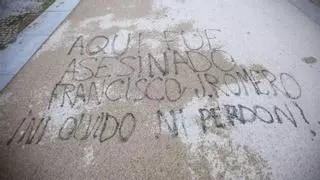 AQUI FUE
ASESINADO
FRANCISCO J.ROMERO
¡NI OLVIDO NI PERDON!